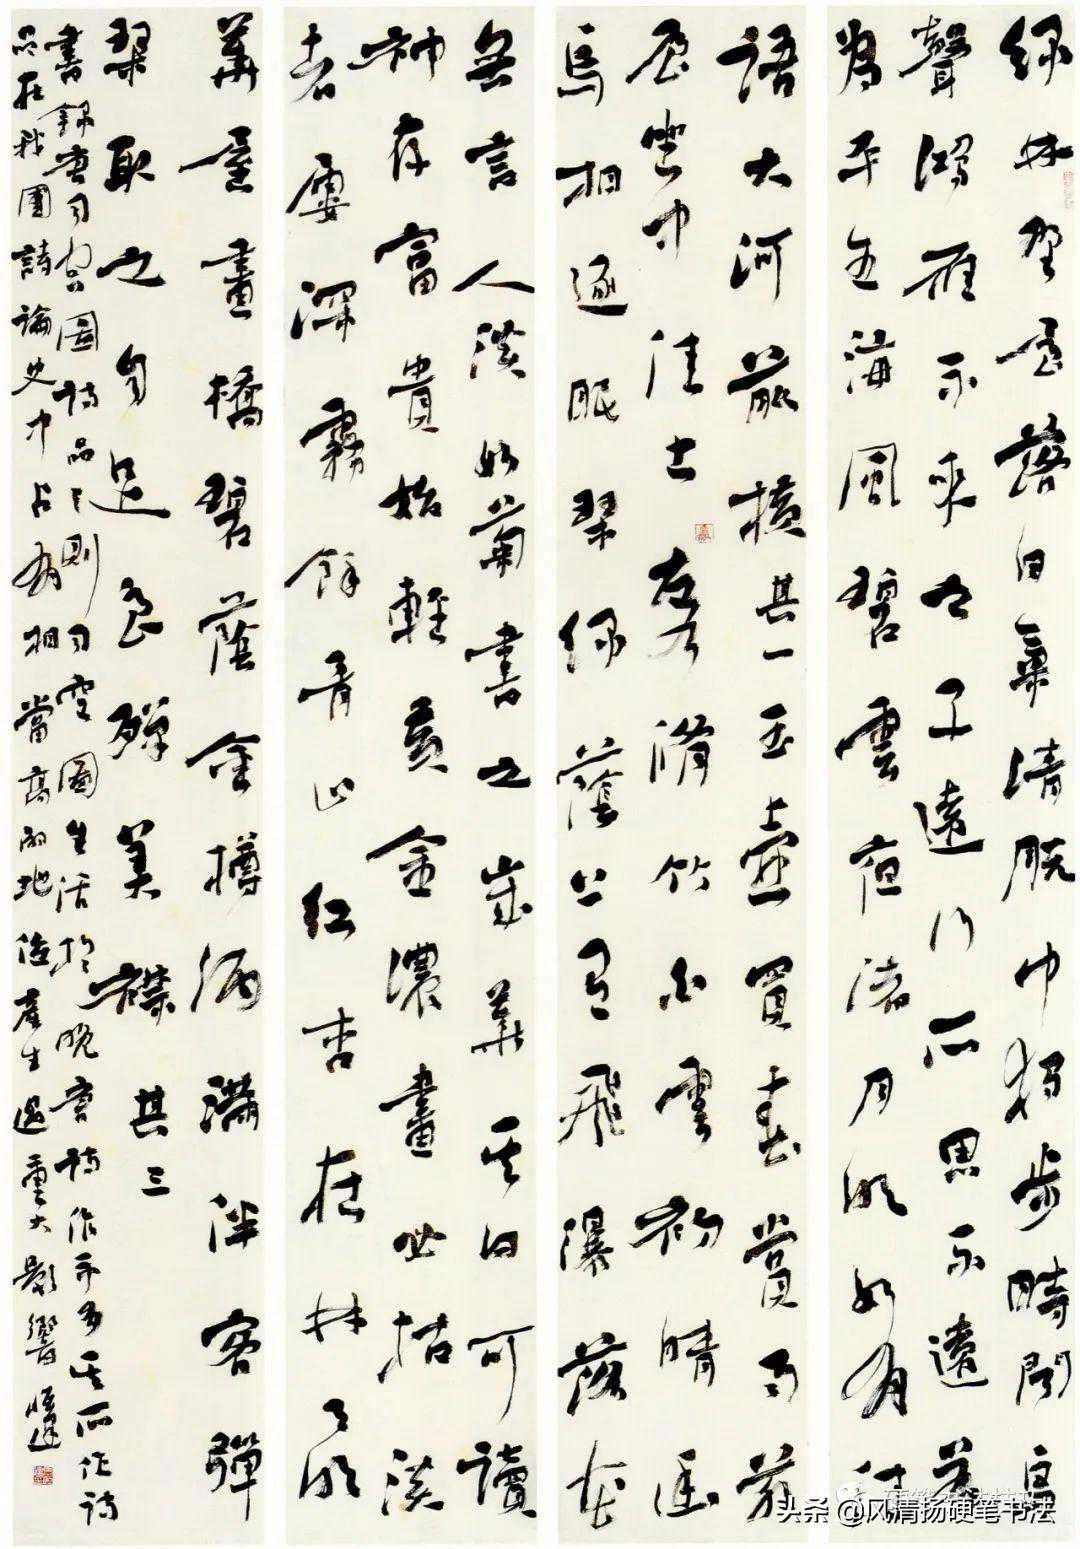 綠林野屋落日氣清脫巾獨步時聞鳥
聲鴻雁不來之子遠行所思不遠若
為平生海風碧雲夜渚月明如有佳
語大河前橫其一玉壺買春賞雨茅
屋坐中佳士左右脩竹白雲初晴幽
鳥相逐眠琴綠蔭上有飛瀑落花
無言人淡如菊書之歲華其曰可讀
神存富貴始輕黃金濃盡必枯淡
者屢深霧餘青山紅杏在林月明
華屋畫橋碧蔭金樽酒滿伴客彈
琴取之自足良殫美襟其三
書錄唐司空圖詩品三則司空圖生活於晚唐詩作不多其所作詩
品在我國詩論史中占有相當高的地位產生過重大影響
头条 @风清扬硬笔书法